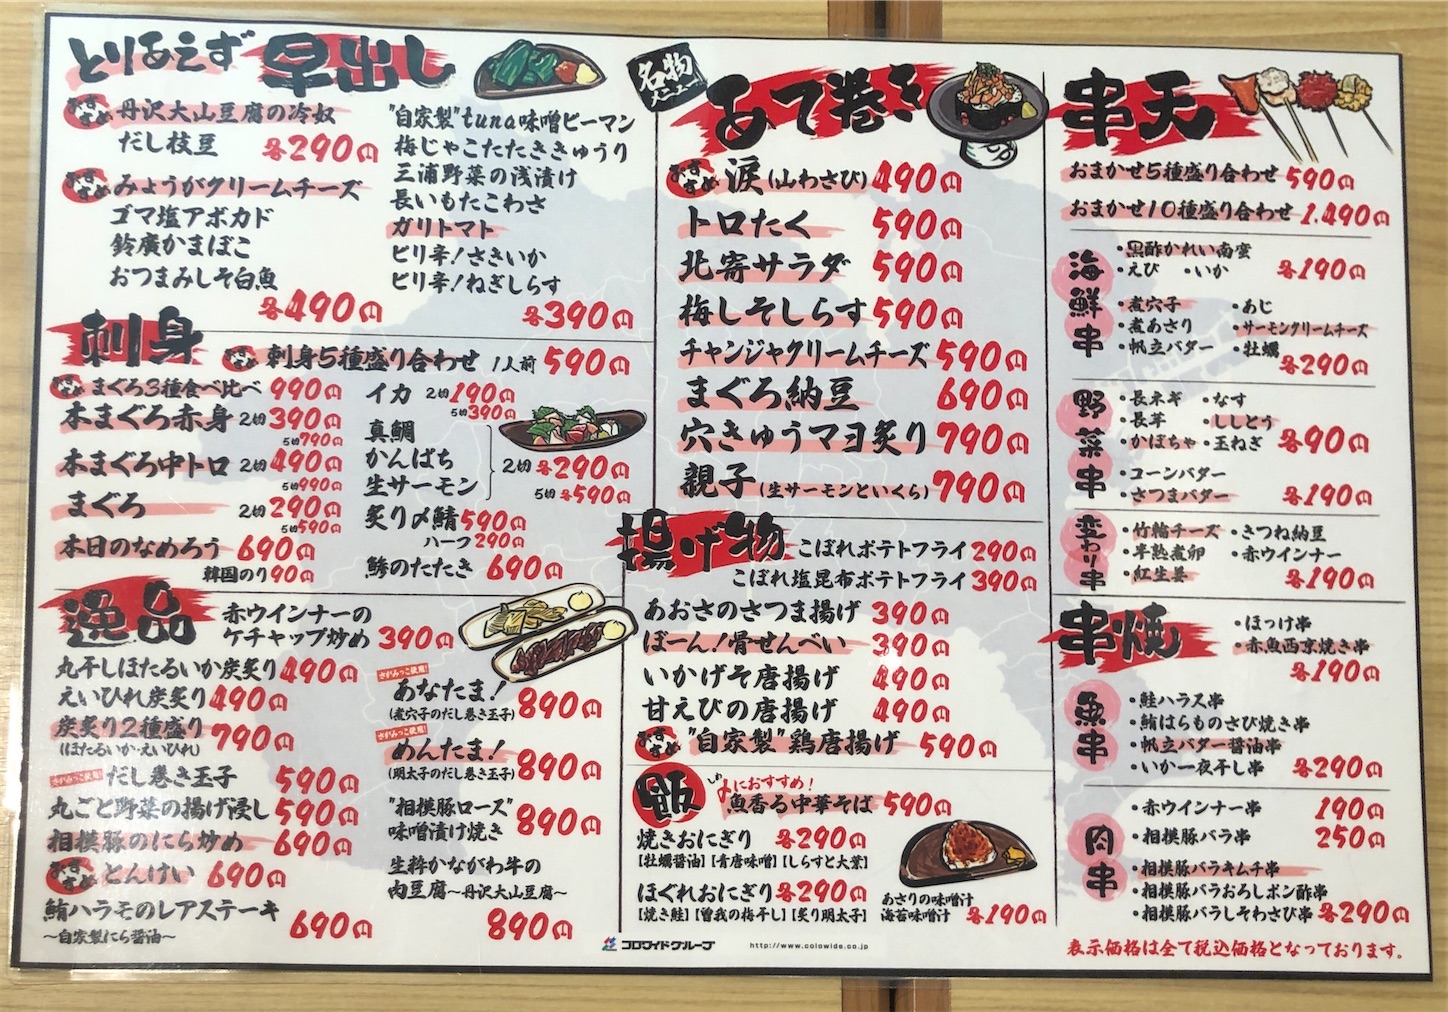 とりあえず 早出し
おすすめ 丹沢大山豆腐の冷奴
だし枝豆 各290円
おすすめ みょうがクリームチーズ
ゴマ塩アボカド
鈴廣かまぼこ
おつまみしそ白魚
各490円
"自家製"tuna味噌ピーマン
梅じゃこたたききゅうり
三浦野菜の浅漬け
長いもたこわさ
ガリトマト
ピリ辛!さきいか
ピリ辛!ねぎしらす
各390円
刺身
おすすめ 刺身5種盛り合わせ 1人前 590円
おすすめ まぐろ3種食べ比べ 990円
本まぐろ赤身 2切 390円
5切 790円
本まぐろ中トロ 2切 490円
5切 990円
まぐろ 2切 290円
5切 590円
本日のなめろう 690円
韓国のり 90円
イカ 2切 190円
5切 390円
真鯛
かんぱち
生サーモン
2切 各290円
5切 各590円
炙り〆鯖 590円
ハーフ 290円
鯵のたたき 690円
逸品
赤ウインナーの
ケチャップ炒め 390円
丸干しほたるいか炭炙り 490円
えいひれ炭炙り 490円
炭炙り2種盛り 790円
(ほたるいか・えいひれ)
さがみっこ使用! だし巻き玉子 590円
丸ごと野菜の揚げ浸し 590円
相模豚のにら炒め 690円
おすすめ とんけい 690円
鮪ハラモのレアステーキ
~自家製にら醤油~ 690円
さがみっこ使用!
あなたま! 890円
(煮穴子のだし巻き玉子)
さがみっこ使用!
めんたま! 890円
(明太子のだし巻き玉子)
"相模豚ロース"
味噌漬け焼き 890円
生粋かながわ牛の
肉豆腐~丹沢大山豆腐~
890円
名物メニュー
あて巻き
おすすめ 涙(山わさび) 490円
トロたく 590円
北寄サラダ 590円
梅しそしらす 590円
チャンジャクリームチーズ 590円
まぐろ納豆 690円
穴きゅうマヨ炙り 790円
親子(生サーモンといくら) 790円
揚げ物
こぼれポテトフライ 290円
こぼれ塩昆布ポテトフライ 390円
あおさのさつま揚げ 390円
ぼーん!骨せんべい 390円
いかげそ唐揚げ 490円
甘えびの唐揚げ 490円
おすすめ "自家製"鶏唐揚げ 590円
飯
〆におすすめ!
魚香る中華そば 590円
焼きおにぎり 各290円
[牡蠣醤油] [青唐味噌] [しらすと大葉]
ほぐれおにぎり 各290円
[焼き鮭] [曽我の梅干し] [炙り明太子]
あさりの味噌汁
海苔味噌汁 各190円
串天
おまかせ5種盛り合わせ 590円
おまかせ10種盛り合わせ 1,490円
海鮮串
・黒酢かれい南蛮
・えび ・いか 各190円
・煮穴子 ・あじ
・煮あさり ・サーモンクリームチーズ
・帆立バター ・牡蠣
各290円
野菜串
・長ネギ ・なす
・長芋 ・ししとう
・かぼちゃ ・玉ねぎ 各90円
・コーンバター
・さつまバター 各190円
変わり串
・竹輪チーズ ・きつね納豆
・半熟煮卵 ・赤ウインナー
・紅生姜 各190円
串焼
・ほっけ串
・赤魚西京焼き串
各190円
魚串
・鮭ハラス串
・鮪はらものさび焼き串
・帆立バター醤油串
・いか一夜干し串 各290円
肉串
・赤ウインナー串 190円
・相模豚バラ串 250円
・相模豚バラキムチ串
・相模豚バラおろしポン酢串
・相模豚バラしそわさび串 各290円
コロワイドグループ http://www.colowide.co.jp
表示価格は全て税込価格となっております。